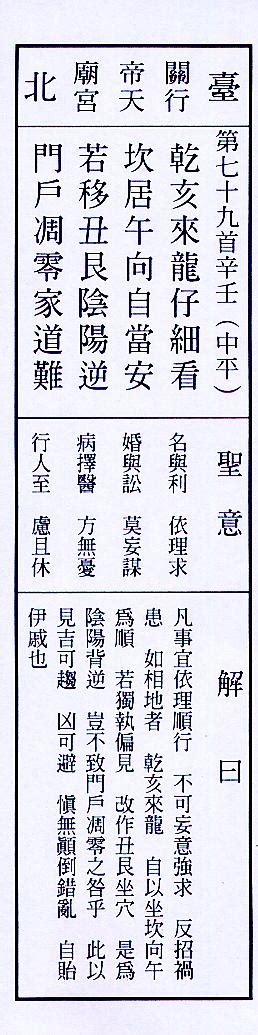 臺
關行
帝天
廟宮
北
第七十九首辛壬（中平）
乾亥來龍仔細看
坎居午向自當安
若移丑艮陰陽逆
門戶凋零家道難
聖意
名與利　依理求
婚與訟　莫妄謀
病擇醫　方無憂
行人至　慮且休
解曰
凡事宜依理順行　不可妄意強求　反招禍
患　如相地者　乾亥來龍　自以坐坎向午
爲順　若獨執偏見　改作丑艮坐穴　是爲
陰陽背逆　豈不致門戶凋零之咎乎　此以
見吉可趨　凶可避　愼無顚倒錯亂　自貽
伊戚也